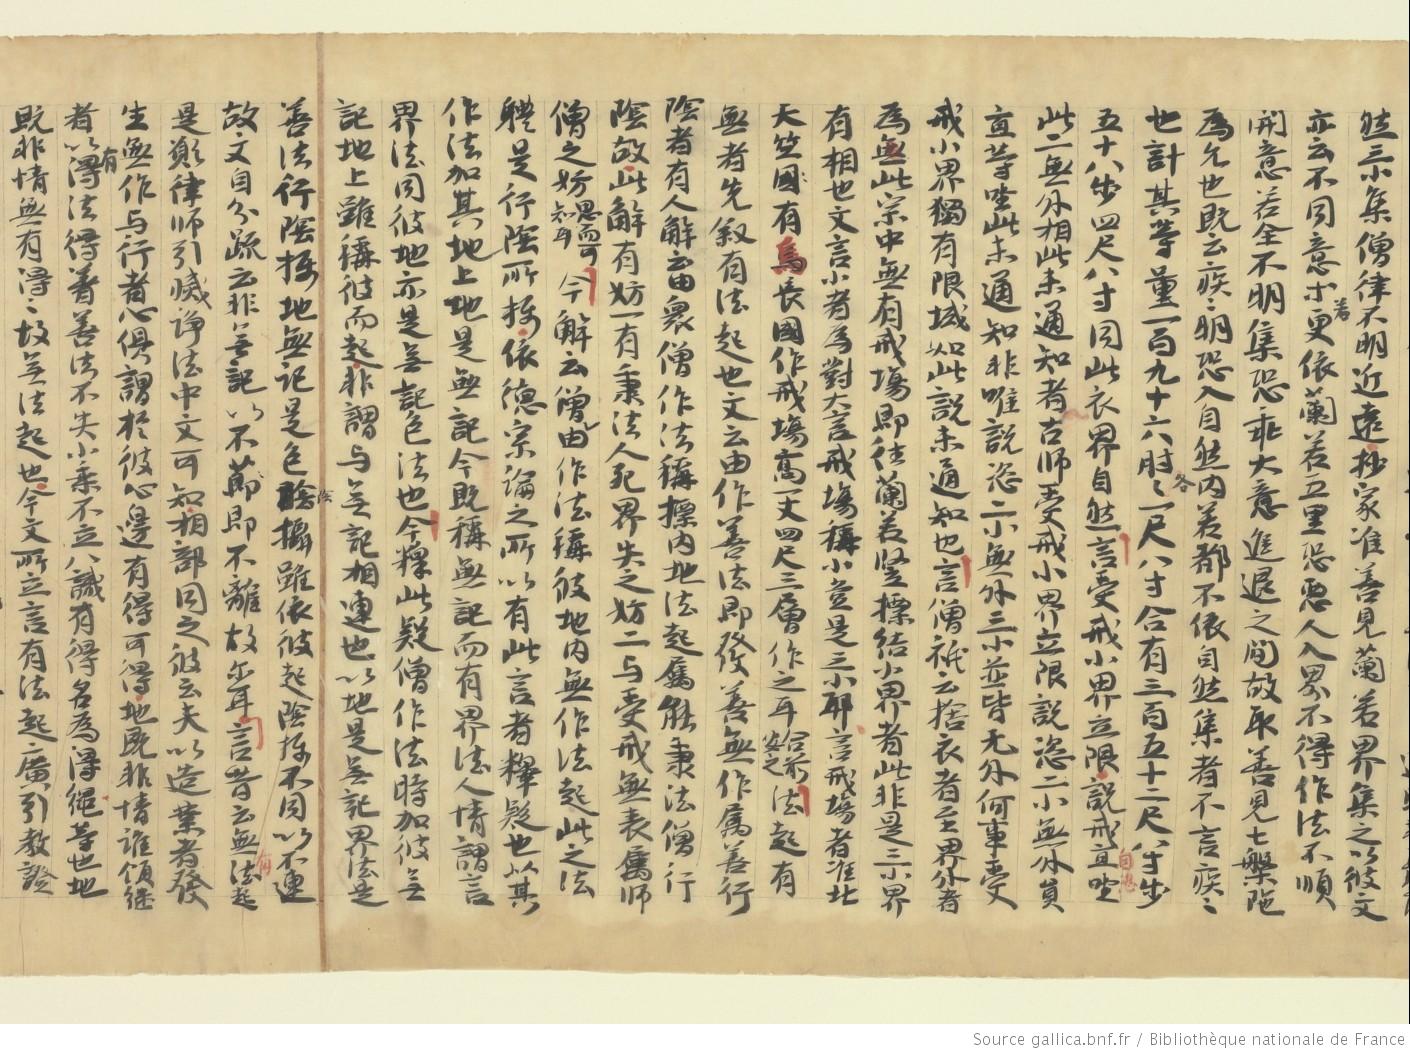 然三小集僧律不明近遠抄家准善見蘭若界集之以彼文
亦云不同意若小更依蘭若五里恐惡人入界不得作法不順
開意若全不明集恐乖大意進退之間故取善見七槃陁
為允也既云疾〻明恐入自然内若都不依自然集者不言疾〻
也計其等量一百九十六八肘〻各一尺八寸合有三百五十二尺八寸步
五十八步四尺八寸同此衣界自然言受戒小界立限說戒直坐
此二無外相此未通知者古師受戒小界立限說恣二小無外負
直等坐此未通知非唯說恣二小無外三小並皆无外何事受
戒小界獨有限域如此說未通知也言僧祇云捨衣者至界外者
為無此宗中無有戒塲即往蘭若竪摽結小界者此非是三小界
有相也文言小者為對大言戒塲稱小豈是三小耶言戒塲者准北
天竺國有烏長國作戒塲高一丈四尺三層作之耳法起有
無者先敘有法起也文云由作善法即發善無作属善行
陰者有人解云由衆僧作法稱摽内地法起属能秉法僧行
陰故此解有妨一有秉法人死界失之妨二与受戒無表属師
僧之妨思而可知耳今解云僧由作法稱彼地内無作法起此之法
體是行陰所攝依德宗論之所以有此言者釋疑也以其
作法加其地上地是無記今既稱無記而有界法人情謂言
界法同彼地亦是無記色法也今釋此疑僧作法時加彼無
記地上雖稱彼而起非謂与無記相連也以地是無記界法是
善法行陰攝地無記是色陰攝雖依彼起陰攝不同以不連
故文自分疏云非無記以不即不離故尒耳言昔云無法起
是勵律師引滅諍法中文可知相部同之彼云夫以造業者發
生無作与行者心俱謂於彼心邊有得可得地既非情誰領継
者以有得法得善法不失小乘不立八識有得名為得繩等也地
既非情無有得〻故無法起也今文所立言有法起廣引教證
Source gallica.bnf.fr / Bibliothèque nationale de France